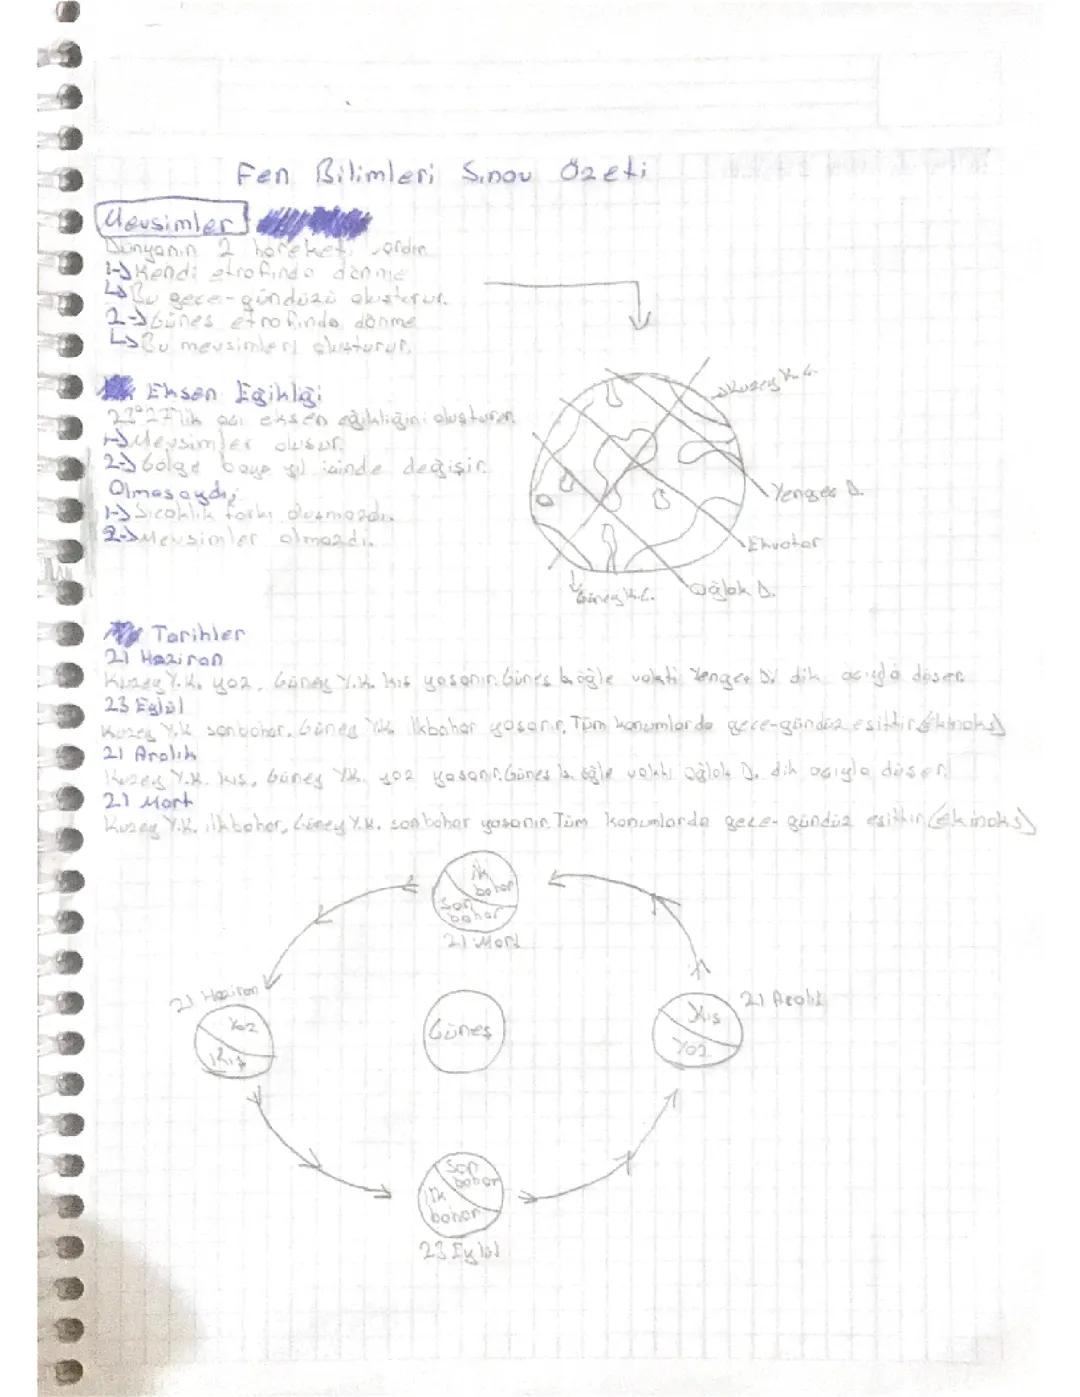 Fen Bilimleri Sınav Özeti
Mevsimler
Dünyanın 2 hareketi vardır.
1-> Kendi etrafında dönme
↳ Bu gece-gündüzü oluşturur.
2-> Güneş etrafında dönme
↳ Bu mevsimleri oluşturur.
Eksen Eğikliği
23°27'lik açı eksen eğikliğini oluşturur.
1-> Mevsimler oluşur.
2-> Gölge boyu yıl içinde değişir.
Olmasaydı;
1-> Sıcaklık farkı oluşmazdı.
2-> Mevsimler olmazdı.
Kuzey K.
Yengeç D.
Ekvator
Oğlak D.
Güney K.
Tarihler
21 Haziran
Kuzey Y.K. yaz, Güney Y.K. kış yaşanır. Güneş öğle vakti Yengeç D. dik açıyla düşer.
23 Eylül
Kuzey Y.K. sonbahar, Güney Y.K. ilkbahar yaşanır. Tüm konumlarda gece-gündüz eşittir. (ekinoks)
21 Aralık
Kuzey Y.K. kış, Güney Y.K. yaz yaşanır. Güneş öğle vakti oğlak D. dik açıyla düşer.
21 Mart
Kuzey Y.K. ilkbahar, Güney Y.K. sonbahar yaşanır. Tüm konumlarda gece-gündüz eşittir. (ekinoks)
ilk
bahar
son
bahar
21 Mart
21 Haziran
Yaz
Kış
Güneş
21 Aralık
Kış
Yaz
Son
bahar
ilk
bahar
23 Eylül